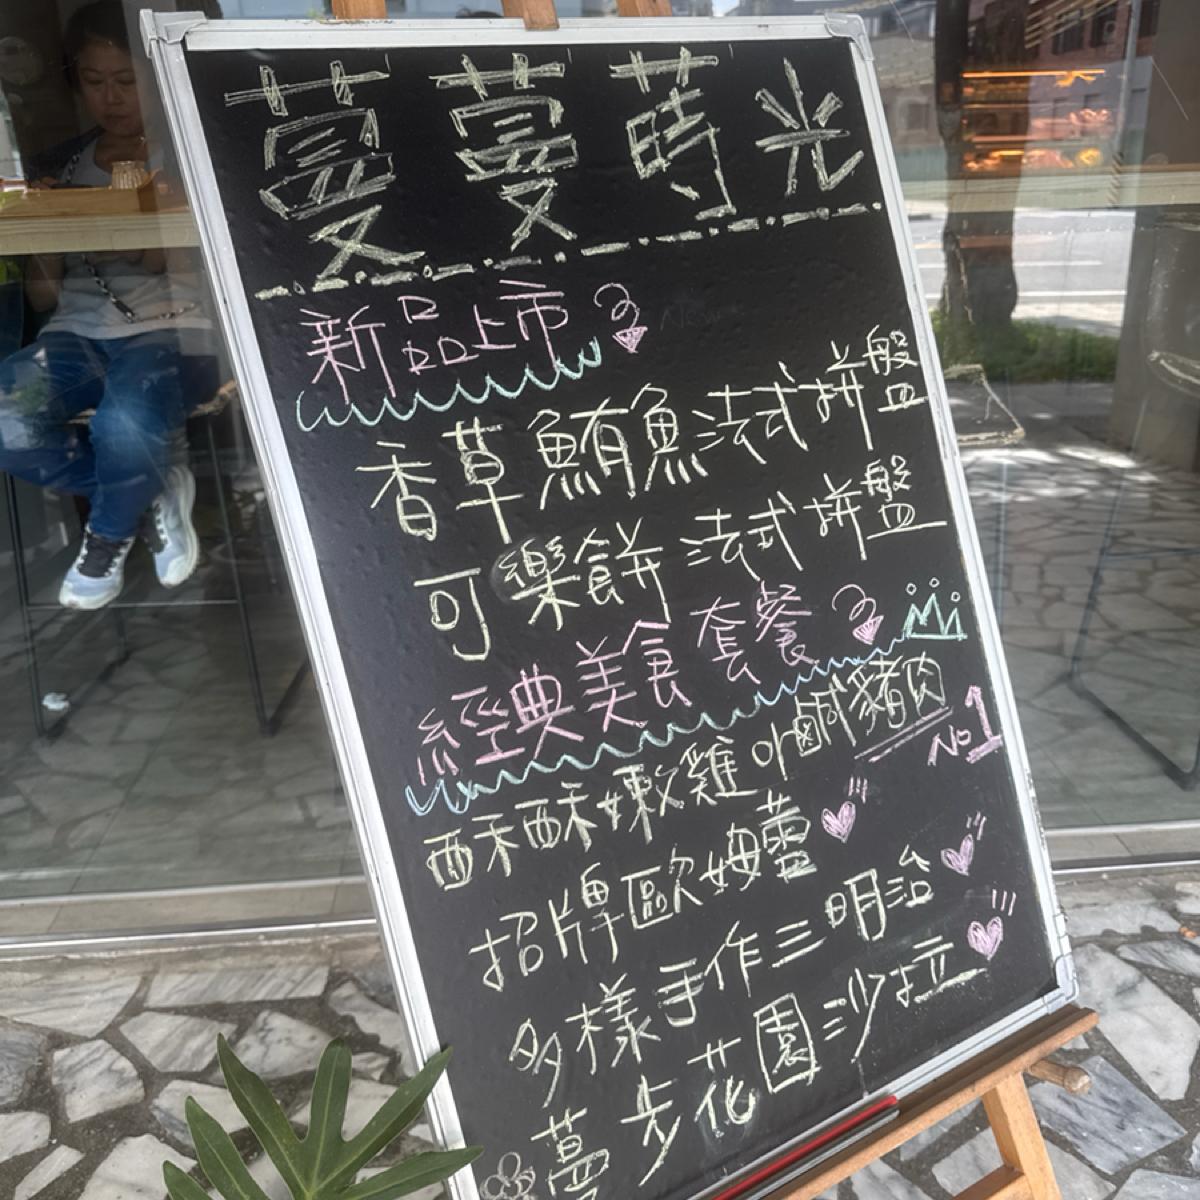 蔓蔓蒔光
新品上市
香草鮪魚法式拼盤
可樂餅法式拼盤
經典美食套餐
酥酥嫩雞or鹹豬肉
No1
招牌歐姆蕾
多樣手作三明治
蔓步花園沙拉